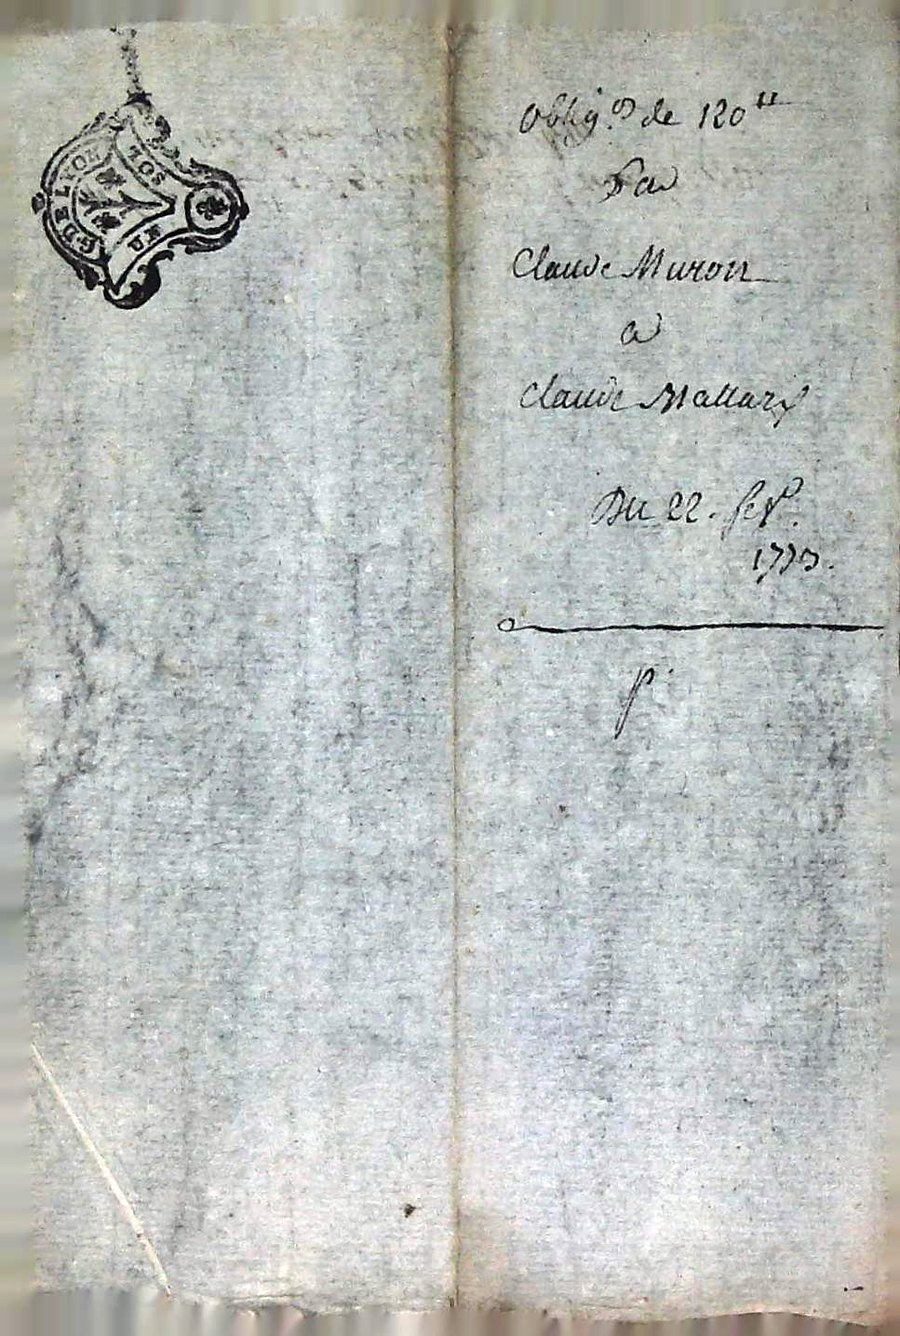 G. DE LYON
UN SOL
Oblig.on de 120 tt
Par
Claude Muron
a
Claude Mallary
Du 22. fev.r
1773.
p.